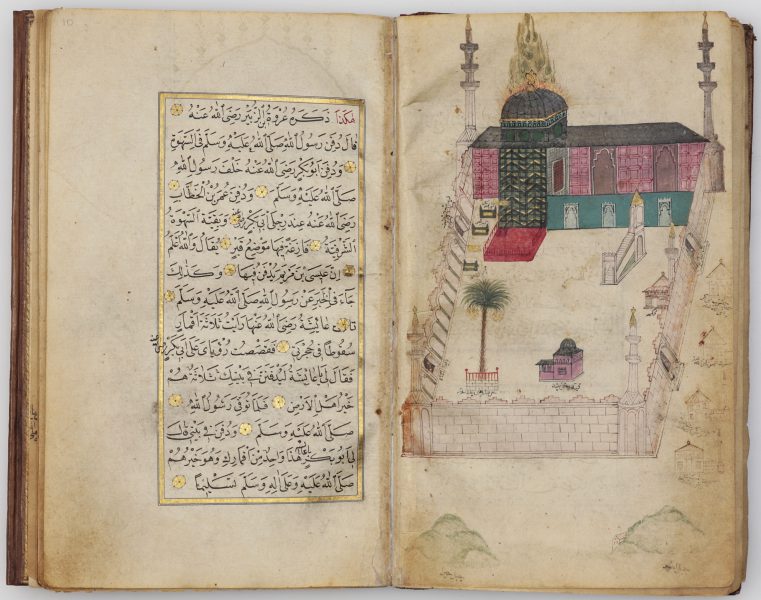 هٰكَذَا ذَكَرَهُ عُرْوَةُ بْنُ الزُّبَيْرِ رَضِىَ اللهُ عَنْهُ
قَالَ دُفِنَ رَسُولُ اللهِ صَلَّى اللهُ عَلَيْهِ وَسَلَّمَ فِى السَّهْوَةِ
وَدُفِنَ اَبُو بَكْرٍ رَضِىَ اللهُ عَنْهُ خَلْفَ رَسُولِ اللهِ
صَلَّى اللهُ عَلَيْهِ وَسَلَّمَ وَدُفِنَ عُمَرُ بْنُ الْخَطَّابِ
رَضِىَ اللهُ عَنْهُ عِنْدَ رِجْلَىْ اَبِى بَكْرٍ وَبَقِيَتِ السَّهْوَةُ
الشَّرْقِيَّةُ فَارِغَةً فِيهَا مَوْضِعُ قَبْرٍ يُقَالُ وَاللهُ اَعْلَمُ
اِنَّ عِيسَى بْنَ مَرْيَمَ يُدْفَنُ فِيهَا وَكَذٰلِكَ
جَاءَ فِى الْخَبَرِ عَنْ رَسُولِ اللهِ صَلَّى اللهُ عَلَيْهِ وَسَلَّمَ
قَالَتْ عَائِشَةُ رَضِىَ اللهُ عَنْهَا رَاَيْتُ ثَلَاثَةَ اَقْمَارٍ
سُقُوطًا فِى حُجْرَتِى فَقَصَصْتُ رُؤْيَاىَ عَلَى اَبِى بَكْرٍ
فَقَالَ لِى يَا عَائِشَةُ لَيُدْفَنَنَّ فِى بَيْتِكِ ثَلَاثَةٌ هُمْ
خَيْرُ اَهْلِ الْاَرْضِ فَلَمَّا تُوُفِّىَ رَسُولُ اللهِ
صَلَّى اللهُ عَلَيْهِ وَسَلَّمَ وَدُفِنَ فِى بَيْتِى قَالَ
لِى اَبُو بَكْرٍ هٰذَا وَاحِدٌ مِنْ اَقْمَارِكِ وَهُوَ خَيْرُهُمْ
صَلَّى اللهُ عَلَيْهِ وَعَلَى اٰلِهِ وَسَلَّمَ تَسْلِيمًا